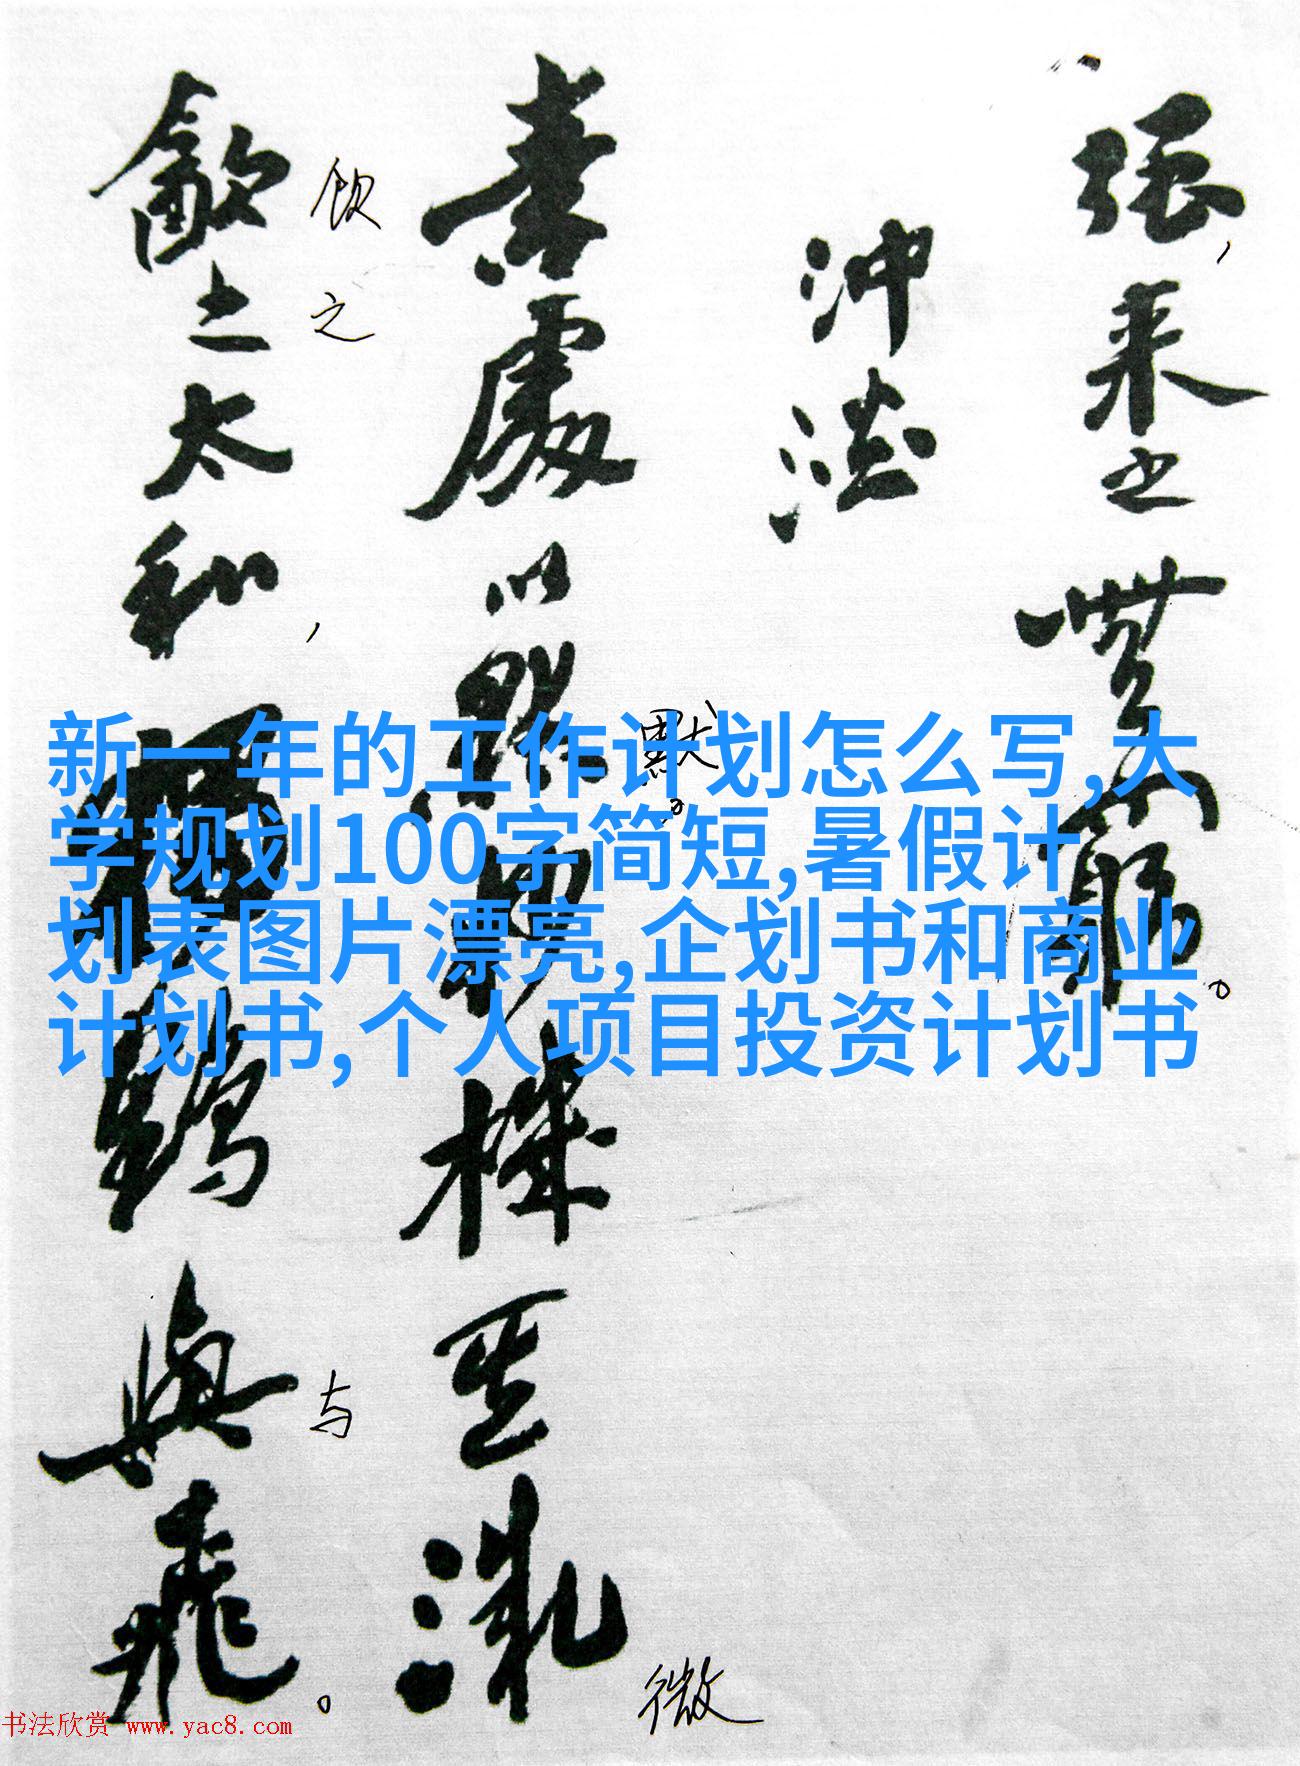 强，来之無窮。
沖淡
素處以默。妙機其微
飲之太和，獨鶴與飛。
默
微
饮
之
与
新一年的工作计划怎么写,大
学规划100字简短,暑假计
划表图片漂亮,企划书和商业
计划书,个人项目投资计划书
书法欣赏 www.yac8.com